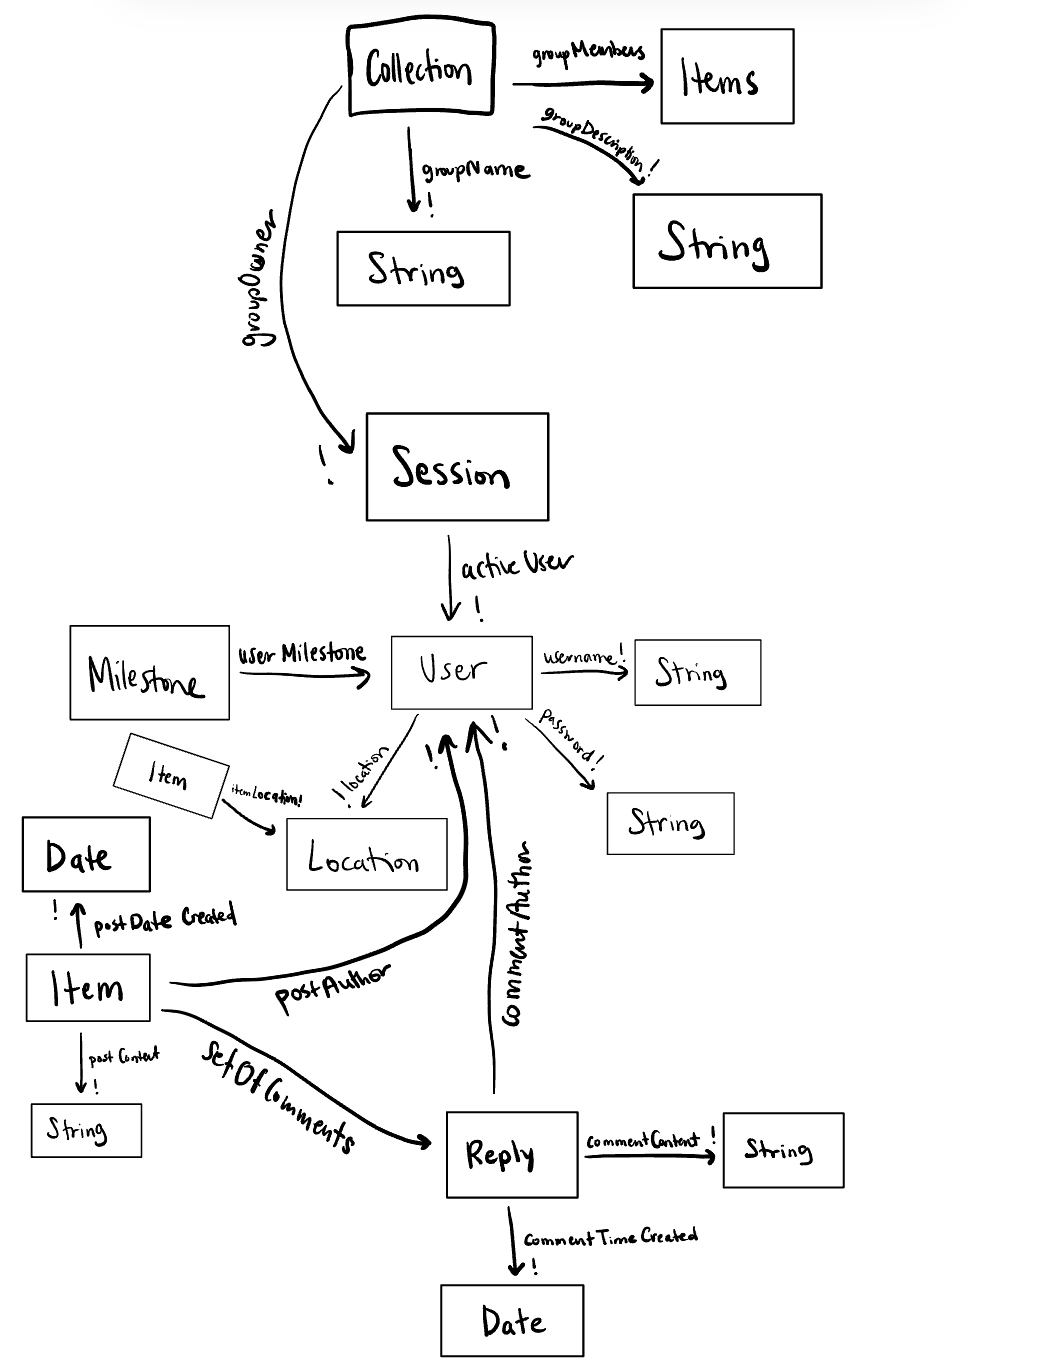 Collection
groupMembers
Items
groupDescription!
groupName
!
String
String
groupOwner
!
Session
activeUser
!
Milestone
userMilestone
User
username!
String
Item
itemLocation!
!location
!
!
password!
String
Date
Location
!
postDate Created
Item
postAuthor
commentAuthor
post Content
!
String
setOfComments
Reply
commentContent !
String
commentTimeCreated
!
Date